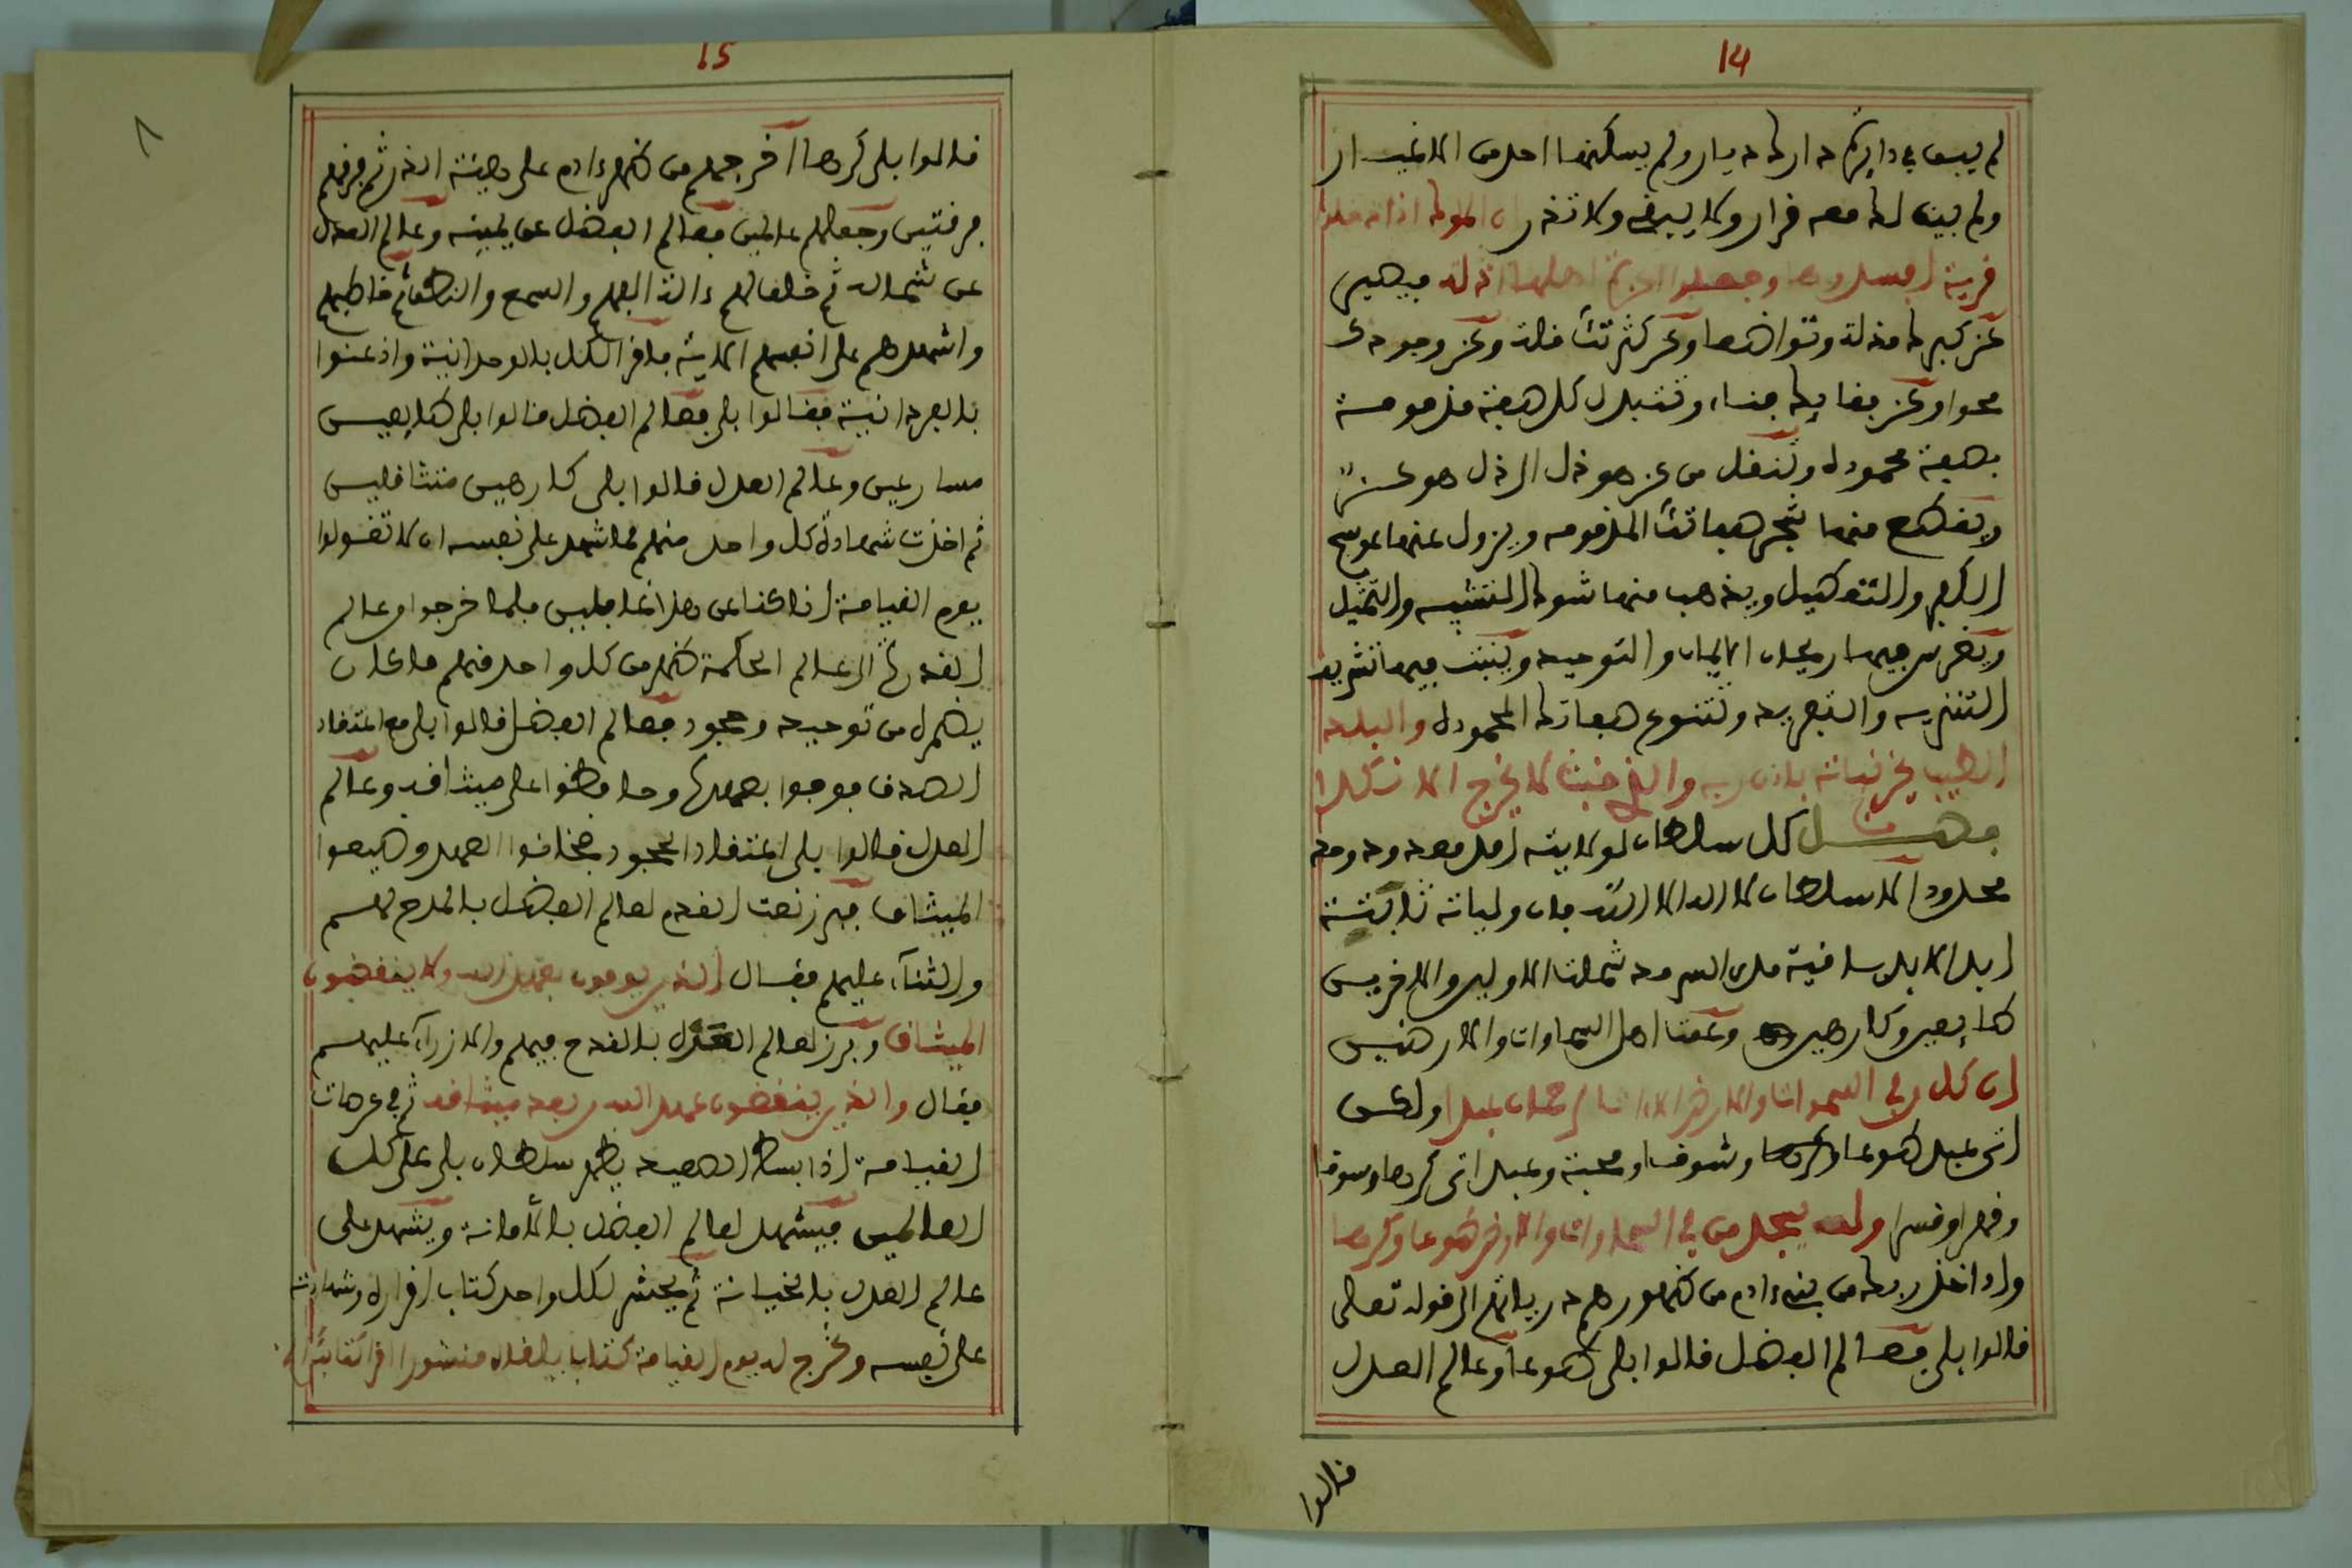 14
لم يبق في دايرته دارك ديار ولم يسكنها احد من الاغيار
ولم يبق له معه قرار ولا يبقي ولا تذر ان الملوك اذا دخلوا
قرية افسدوها وجعلوا اعزة اهلها اذلة فيصير
عز كبرك مذلة وتواضعا وعز كثرتك قلة وعز وجودك
محوا وعز بقايك فناء وتتبدل كل صفة مذمومة
بصفة محمودة وتنقل من عز هو ذل الى ذل هو عز
ويقطع منها شجر صفاتك المذمومه ويزول عنها عوسج
الكفر والتعطيل ويذهب منها شوك التشبيه والتمثيل
ويغرس فيها ريحان الايمان والتوحيد وينبت فيها
التنزيه والتفريد وتتنوع صفاتك المحمودة والبلد
الطيب يخرج نباته باذن ربه والذي خبث لا يخرج الا نكدا
فصل كل سلطان لولايته امد معدود وحد
محدود الا سلطان لا اله الا الله فان ولايته ثابتة
ابد الابد باقية مدى السرمد شملت الاولين والاخرين
طايعين وكارهين وعمت اهل السماوات والارضين
ان كل من في السموات والارض الا اتا الرحمان عبدا ولكن
اتى عبد طوعا وشوقا ومحبة وعبد اتى كرها وسوقا
وقهرا وقسرا ولله يسجد من في السماوات والارض طوعا وكرها
واذ اخذ ربك من بني ءادم من ظهورهم ذرياتهم الى قوله تعالى
قالوا بلى فعالم الفضل قالوا بلى طوعا وعالم العدل
قالوا
15
٨
قالوا بلى كرها اخرجهم من ظهر ءادم على هيئة الذر ثم فرقهم
فرقتين وجعلهم عالمين فعالم الفضل عن يمينه وعالم العدل
عن شماله ثم خلق لهم ءالة الفهم والسمع والنطق ثم خاطبهم
واشهدهم على انفسهم الاية فاقر الكل بالوحدانية واذعنوا
بالفردانية فقالوا بلى فعالم الفضل قالوا بلى طايعين
مسارعين وعالم العدل قالوا بلى كارهين متثاقلين
ثم اخذت شهادة كل واحد منهم فاشهد على نفسه ان لا تقولوا
يوم القيامة انا كنا عن هذا غافلين فلما خرجوا من عالم
القدرة الى عالم الحكمة ظهر من كل واحد منهم ما كان
يضمره من توحيد وجحود فعالم الفضل قالوا بلى مع اعتقاد
الصدق فوفوا بعهده وحافظوا على ميثاقه وعالم
العدل قالوا بلى باعتقاد الجحود فخانوا العهد وضيعوا
الميثاق فبرز نعت القدم لعالم الفضل بالمدح لهم
والثناء عليهم فقال الذين يوفون بعهد الله ولا ينقضون
الميثاق وبرز لعالم العدل بالقدح فيهم والازراء عليهم
فقال والذين ينقضون عهد الله من بعد ميثاقه ثم في عرصات
القيامة اذا بسط الصعيد يظهر سلطان بلى على كل
العالمين فيشهد لعالم الفضل بالامانة ويشهد على
عالم العدل بالخيانة ثم ينشر لكل واحد كتاب اقراره وشهادته
على نفسه ونخرج له يوم القيامة كتابا يلقاه منشورا اقرا كتابك